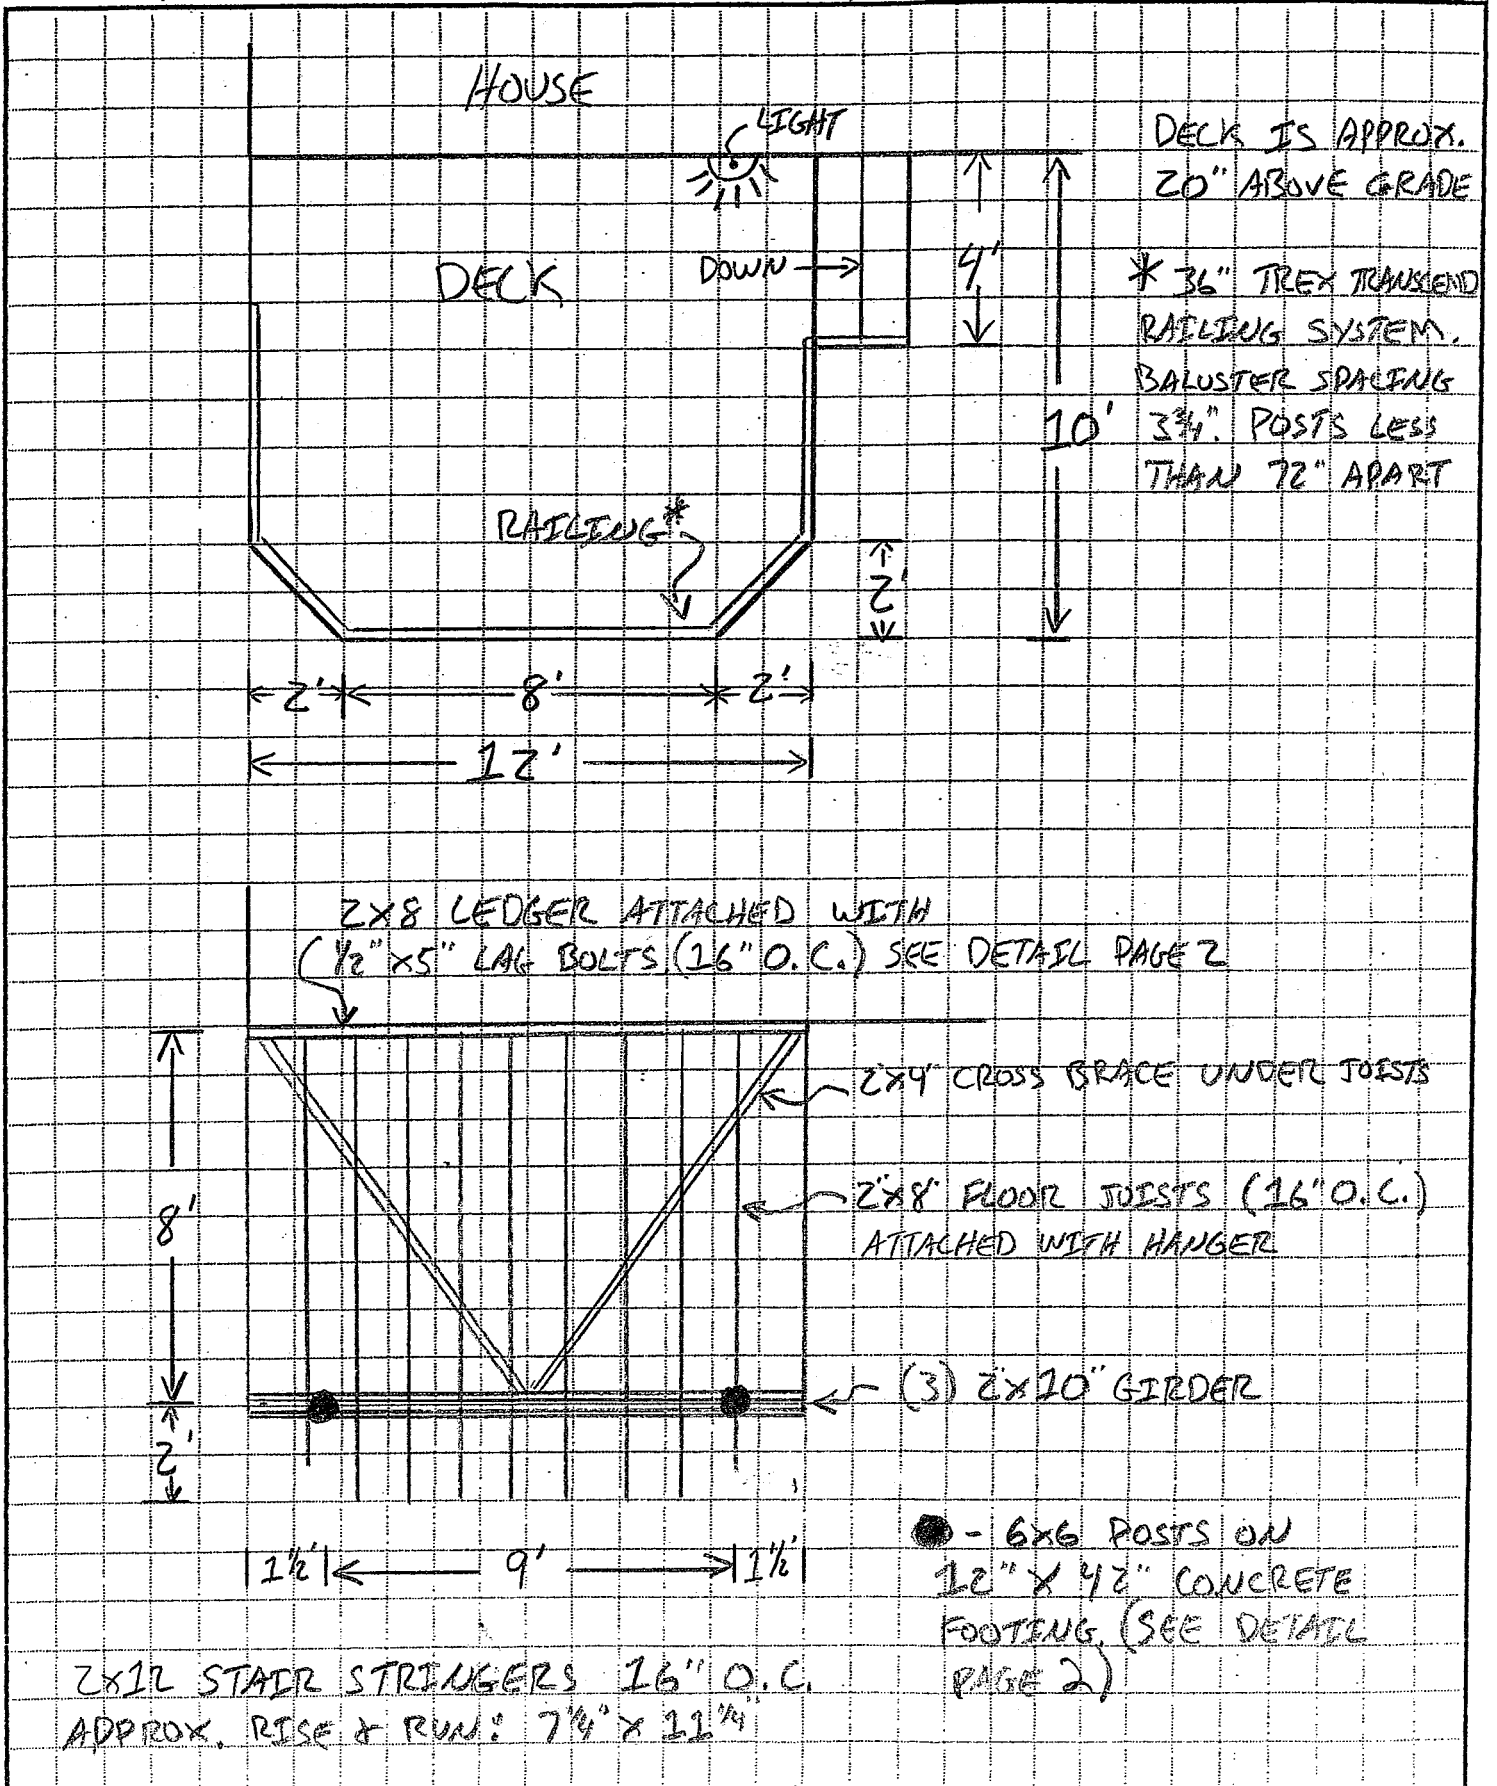 HOUSE
LIGHT
DECK IS APPROX.
20" ABOVE GRADE
DOWN
4'
DECK
* 36" TREX TRANSCEND
RAILING SYSTEM.
BALUSTER SPACING
3¾". POSTS LESS
THAN 72" APART
10'
RAILING*
2'
2'
8'
2'
12'
2X8 LEDGER ATTACHED WITH
½" X5" LAG BOLTS (16" O.C.) SEE DETAIL PAGE 2
2X4" CROSS BRACE UNDER JOISTS
8'
2"X8" FLOOR JOISTS (16" O.C.)
ATTACHED WITH HANGER
(3) 2"X10" GIRDER
2'
1½'
9'
1½'
- 6X6 POSTS ON
12" X 42" CONCRETE
FOOTING. (SEE DETAIL
PAGE 2)
2X12 STAIR STRINGERS 16" O.C.
APPROX. RISE & RUN: 7¼" X 11¼"